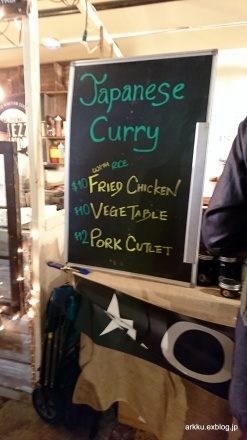 Japanese
Curry
WITH RICE
$10 FRIED CHICKEN
$10 VEGETABLE
$12 PORK CUTLET
arkku.exblog.jp